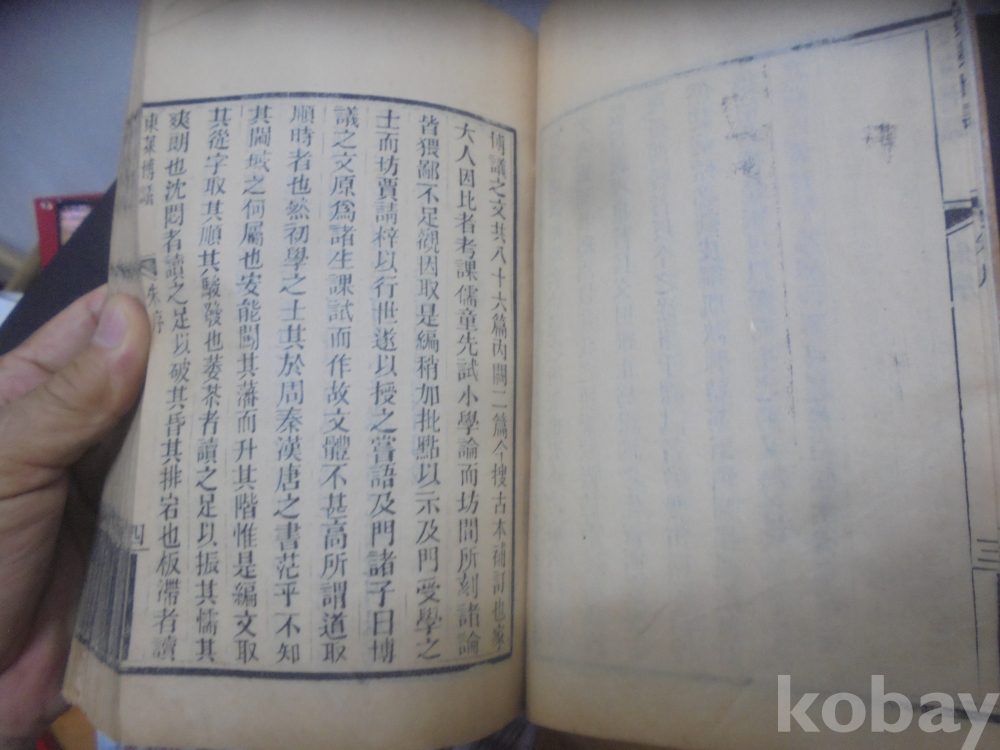 博議之文共八十六篇內闕二篇今搜古本補訂也家
大人因比者考課儒童先試小學論而坊間所刻諸論
皆猥鄙不足觀因取是編稍加批點以示及門受學之
士而坊賈請梓以行世遂以授之嘗語及門諸子曰博
議之文原為諸生課試而作故文體不甚高所謂道取
順時者也然初學之士其於周秦漢唐之書茫乎不知
其閫域之何屬也安能闚其藩而升其階惟是編文取
其從字取其順其駿發也萎苶者讀之足以振其懦其
爽朗也沈悶者讀之足以破其昏其排宕也板滯者讀
東萊博議
序
四
三
kobay